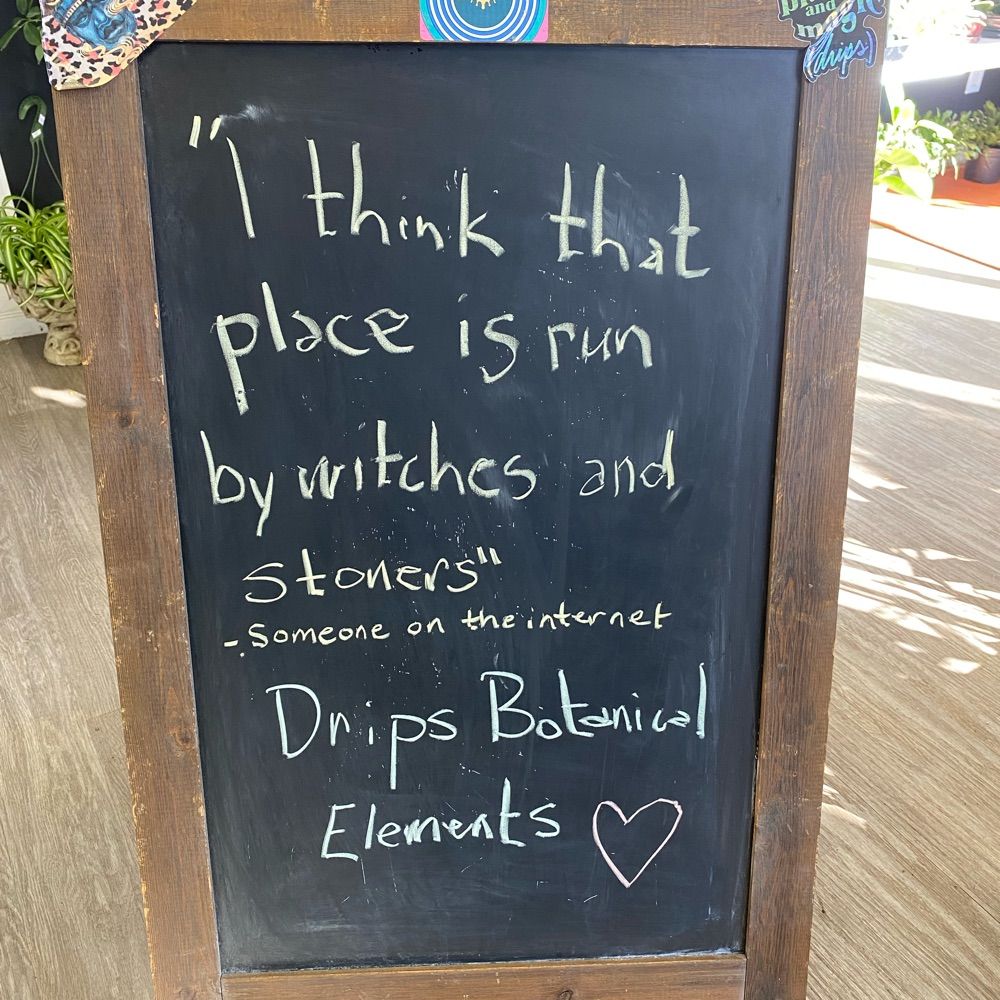 and
(drips)
"I think that
place is run
by witches and
stoners"
- Someone on the internet
Drips Botanical
Elements